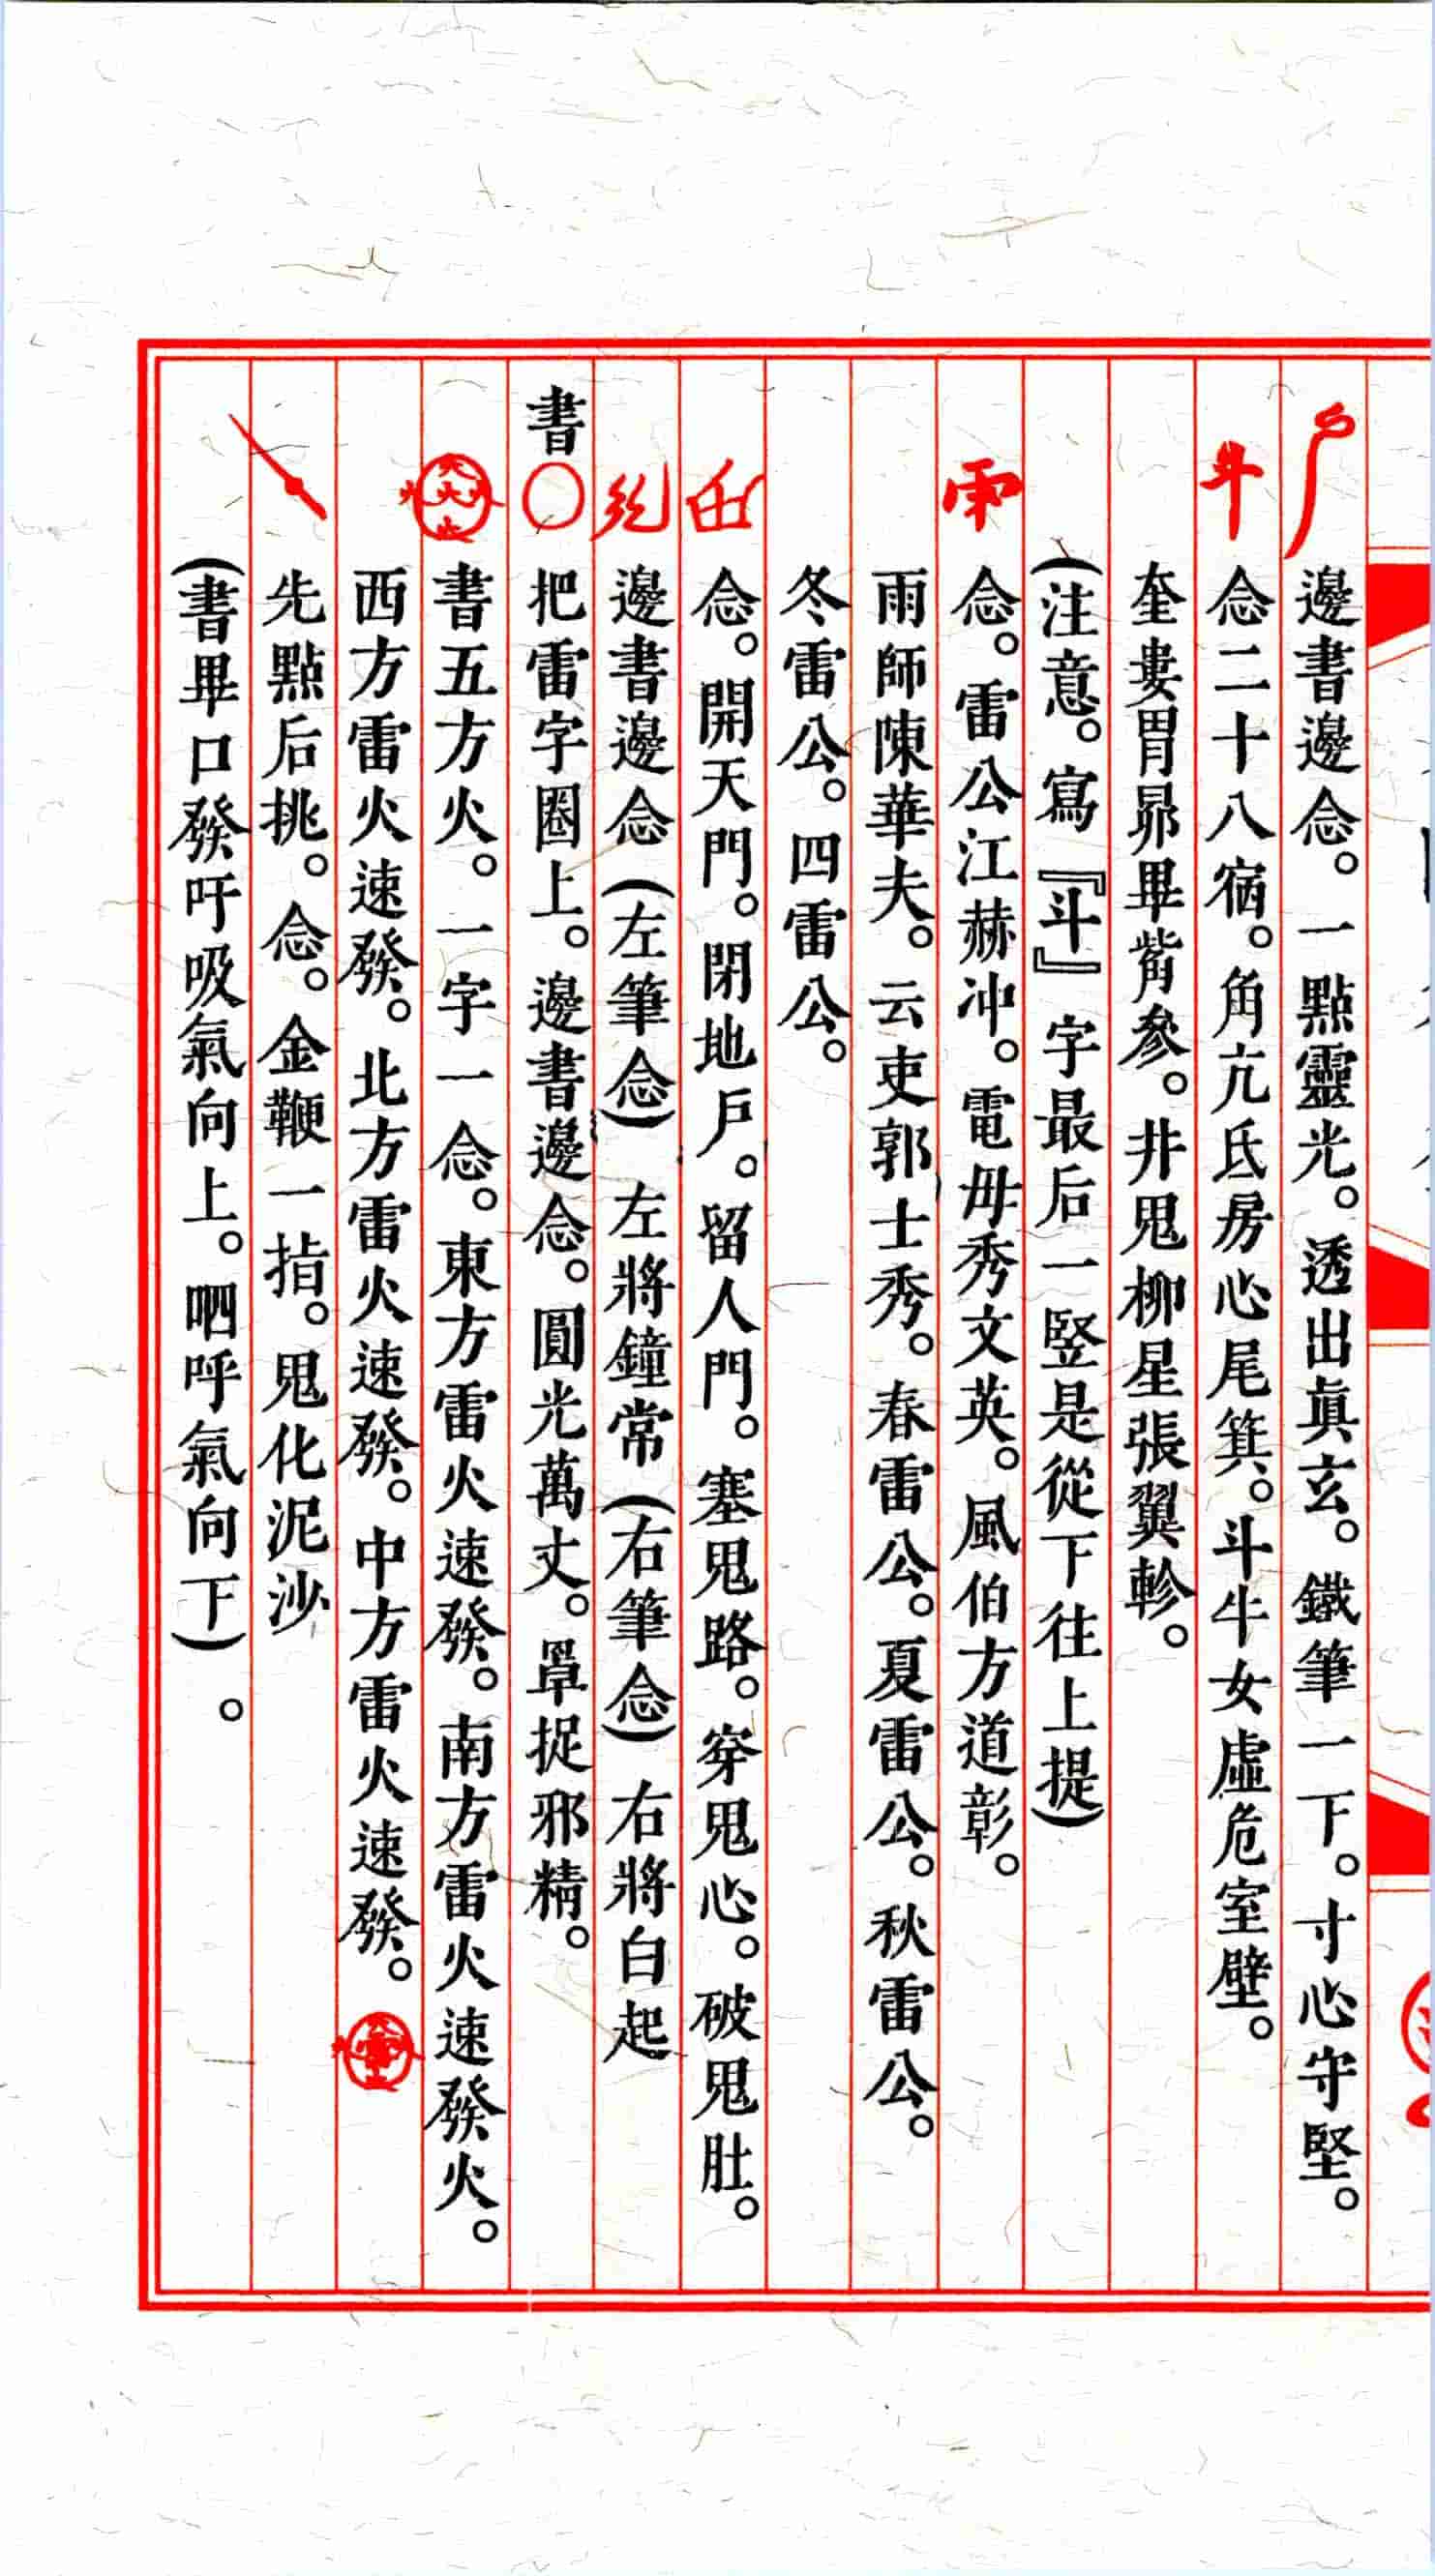 邊書邊念。一點靈光。透出眞玄。鐵筆一下。寸心守堅。
斗
念二十八宿。角亢氐房心尾箕。斗牛女虛危室壁。
奎婁胃昴畢觜參。井鬼柳星張翼軫。
(注意。寫『斗』字最后一竪是從下往上提)
雨
念。雷公江赫冲。電毋秀文英。風伯方道彰。
雨師陳華夫。云吏郭士秀。春雷公。夏雷公。秋雷公。
冬雷公。四雷公。
念。開天門。閉地戶。留人門。塞鬼路。穿鬼心。破鬼肚。
邊書邊念(左筆念)左將鐘常(右筆念)右將白起
書〇把雷字圈上。邊書邊念。圓光萬丈。罩捉邪精。
書五方火。一字一念。東方雷火速發。南方雷火速發火。
西方雷火速發。北方雷火速發。中方雷火速發。
先點后挑。念。金鞭一指。鬼化泥沙
(書畢口發吁吸氣向上。呬呼氣向下)。